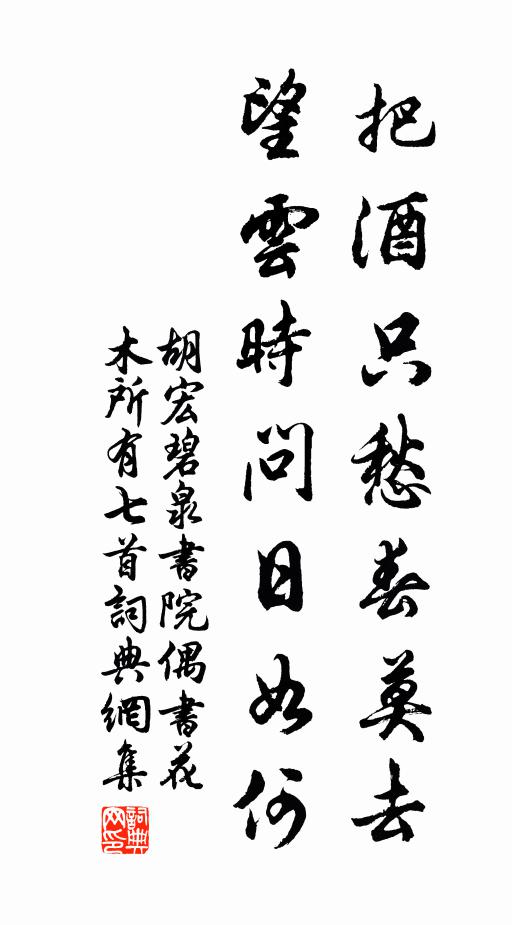 把酒只愁春莫去
望雲時問日如何
胡宏碧泉書院偶書花
木所有七首詞典網集
詞典
网印